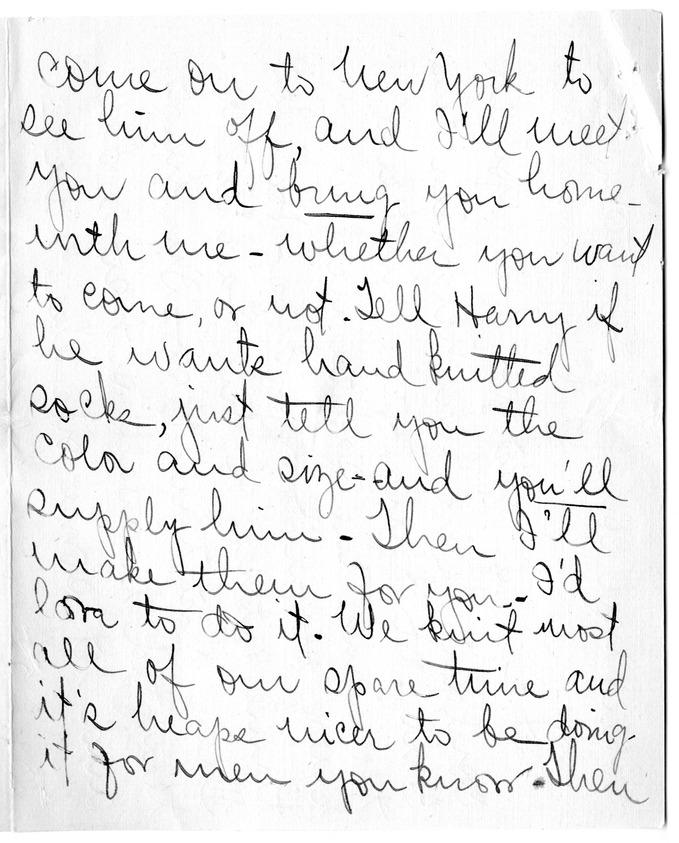 come on to New York to
see him off, and I'll meet
you and bring you home-
with me - whether you want
to come, or not. Tell Harry if
he wants hand knitted
socks, just tell you the
color and size - and you'll
supply him - Then I'll
make them for you - I'd
love to do it. We knit most
all of our spare time and
it's heaps nicer to be doing
it for men you know. Then